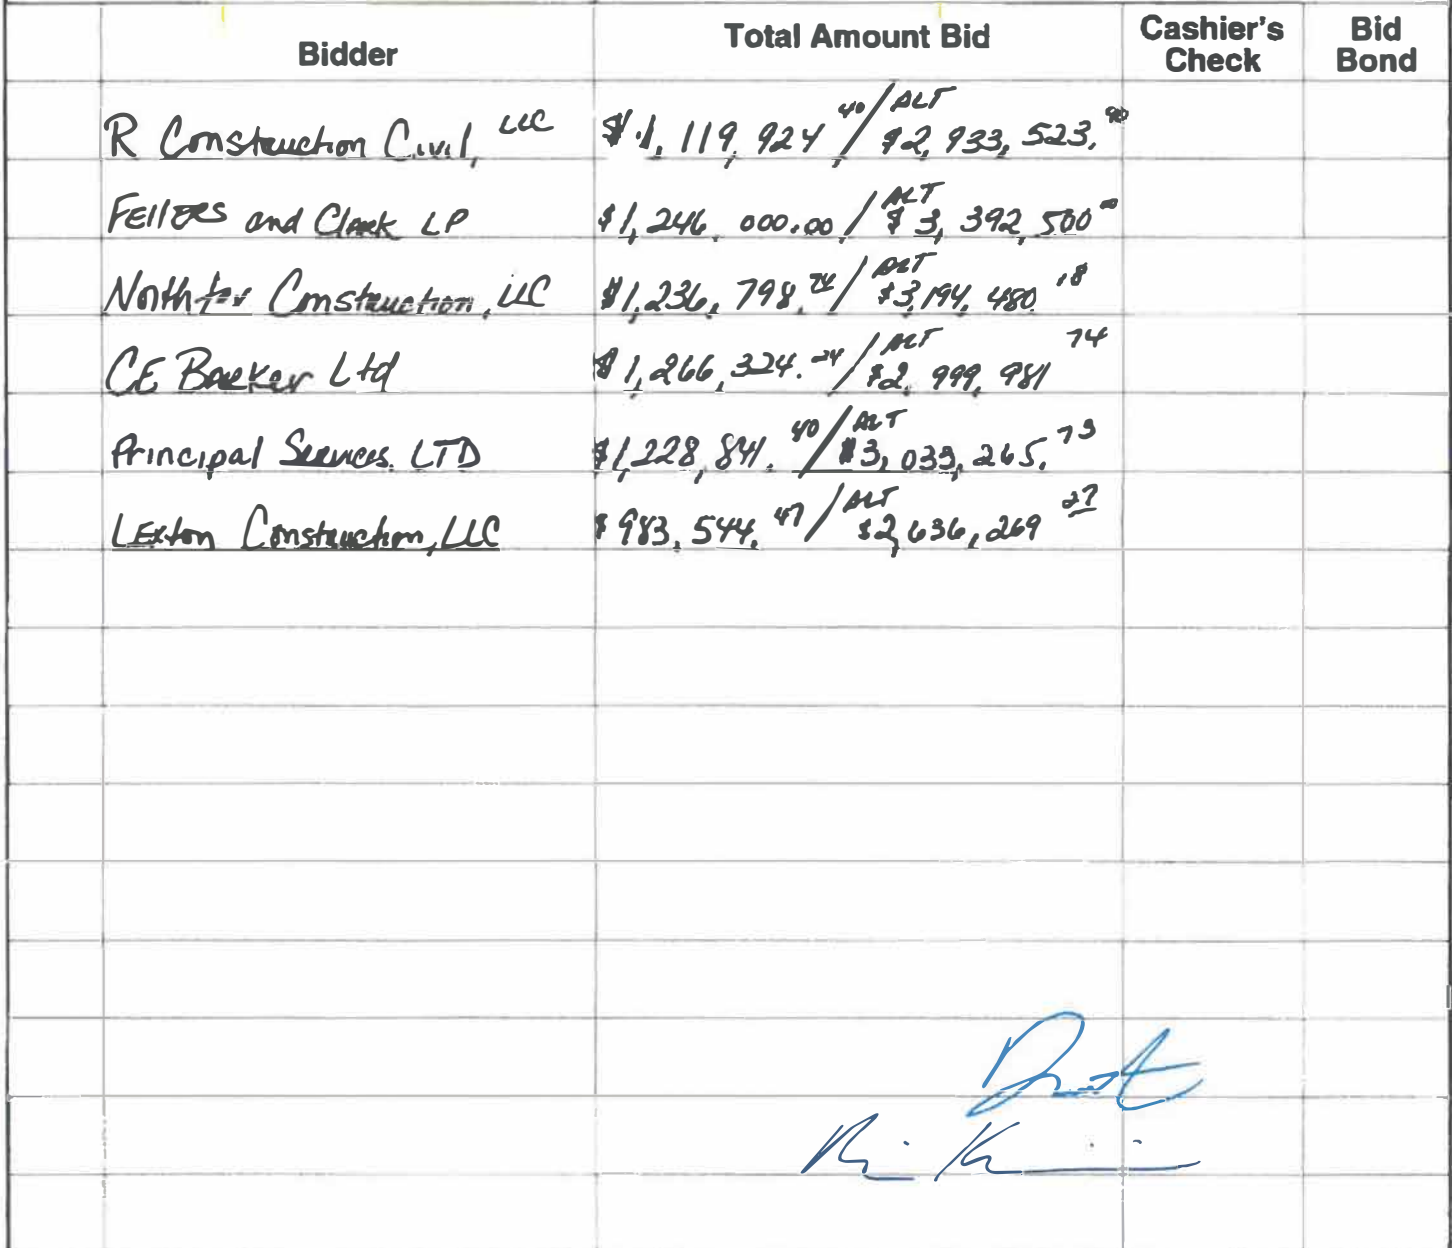 Bidder Total Amount Bid Cashier's Check Bid Bond
R Construction Civil, LLC $1,119,924.40 / ALT $2,933,523.90
Fellers and Clark LP $1,246,000.00 / ALT $3,392,500.00
North tex Construction, LLC $1,236,798.74 / ALT $3,194,480.18
CE Barker Ltd $1,266,324.24 / ALT $2,999,981 74
Principal Services LTD $1,228,841.40 / ALT $3,033,265.73
Lexton Construction, LLC $983,544.47 / ALT $2,636,269 27